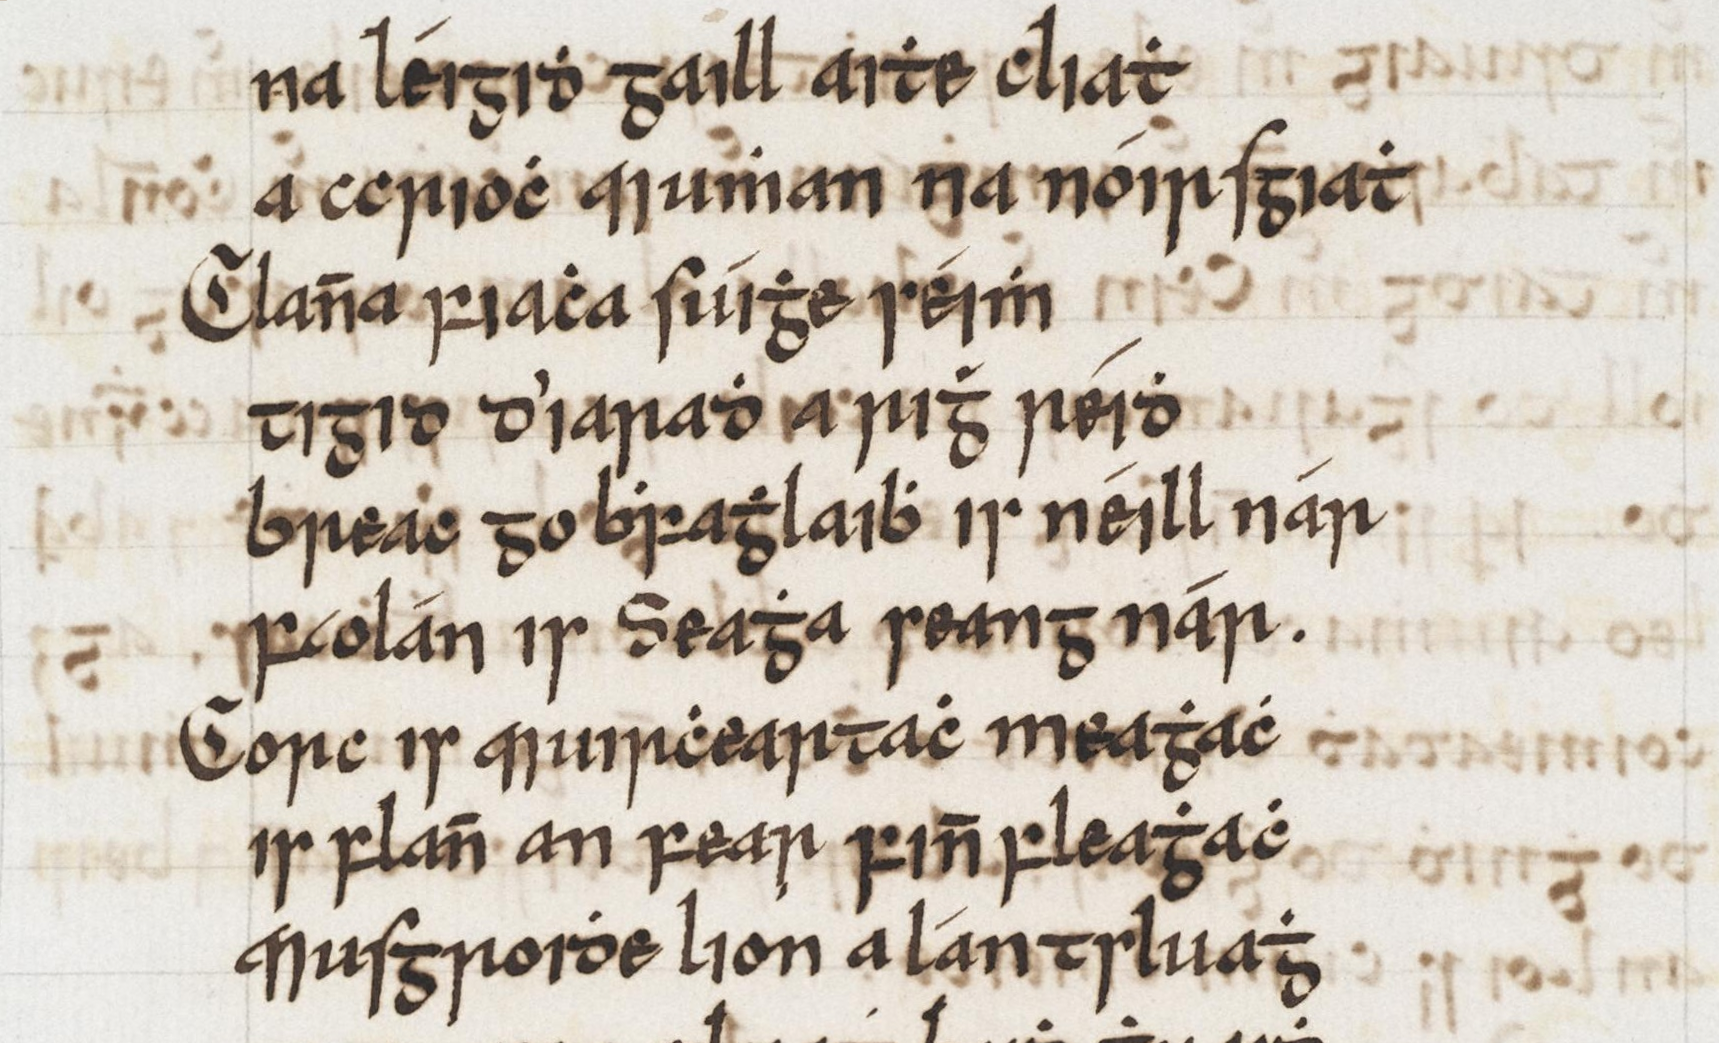 na léigiḋ gaill aiṫe cliaṫ
a ccrioċ Muṁan na nóirsgiaṫ
Clan̄a fiaċa súiġe séiṁ
tigid d'iaraḋ a riġ réiḋ
breac go bḟaġlaiḃ is néill nár
faolán is Seaġa seang nár.
Corc is Muirċeartaċ meaġaċ
is flan̄ an fear fin̄ fleaġaċ
Musgroiḋe lion a lán tsluaġ